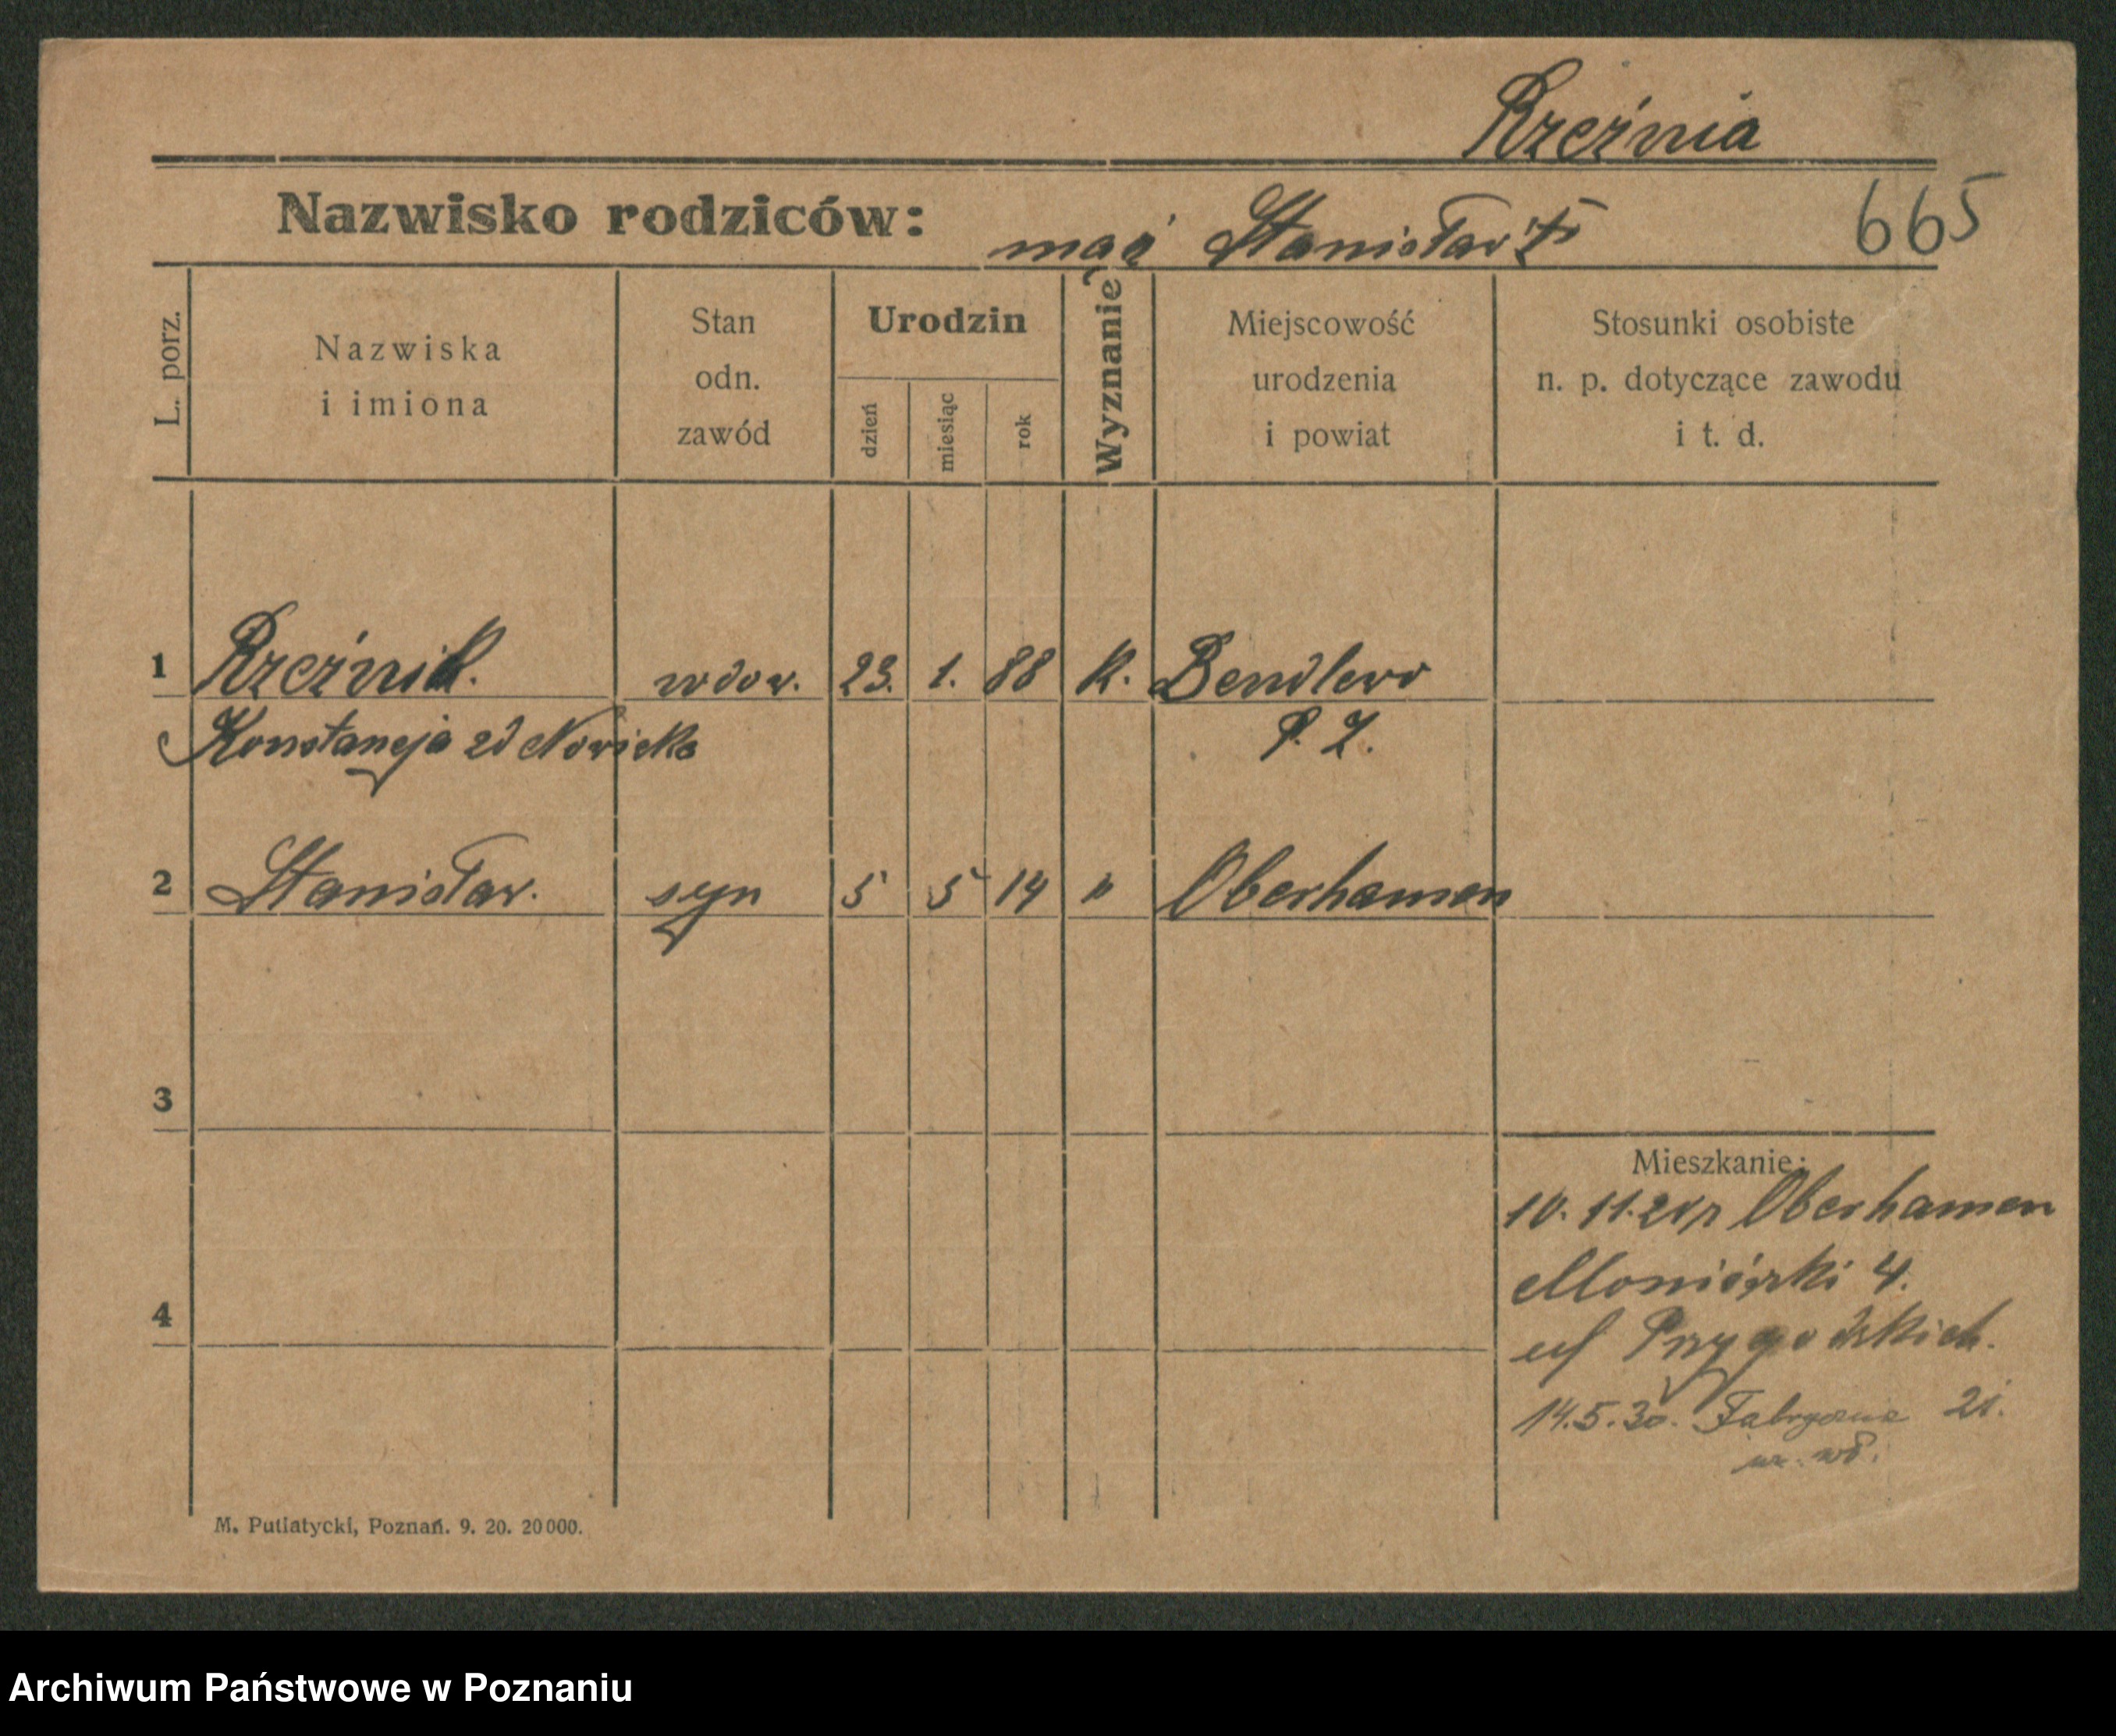 Rzeźnia
Nazwisko rodziców: mąż Stanisław
665
L. porz.
Nazwiska
i imiona
Stan
odn.
zawód
Urodzin
dzień
miesiąc
rok
Wyznanie
Miejscowość
urodzenia
i powiat
Stosunki osobiste
n. p. dotyczące zawodu
i t. d.
1 Rzeźnik. wdow. 23. 1. 88 K. Bendlewo
Konstancja zd Nowicka
2 Stanisław. syn 5 5 14 " Oberhamen
3
Mieszkanie:
10. 11. Oberhamen
4
4.
14.5.30. Fabryczna
M. Putiatycki, Poznań. 9. 20. 20000.
Archiwum Państwowe w Poznaniu